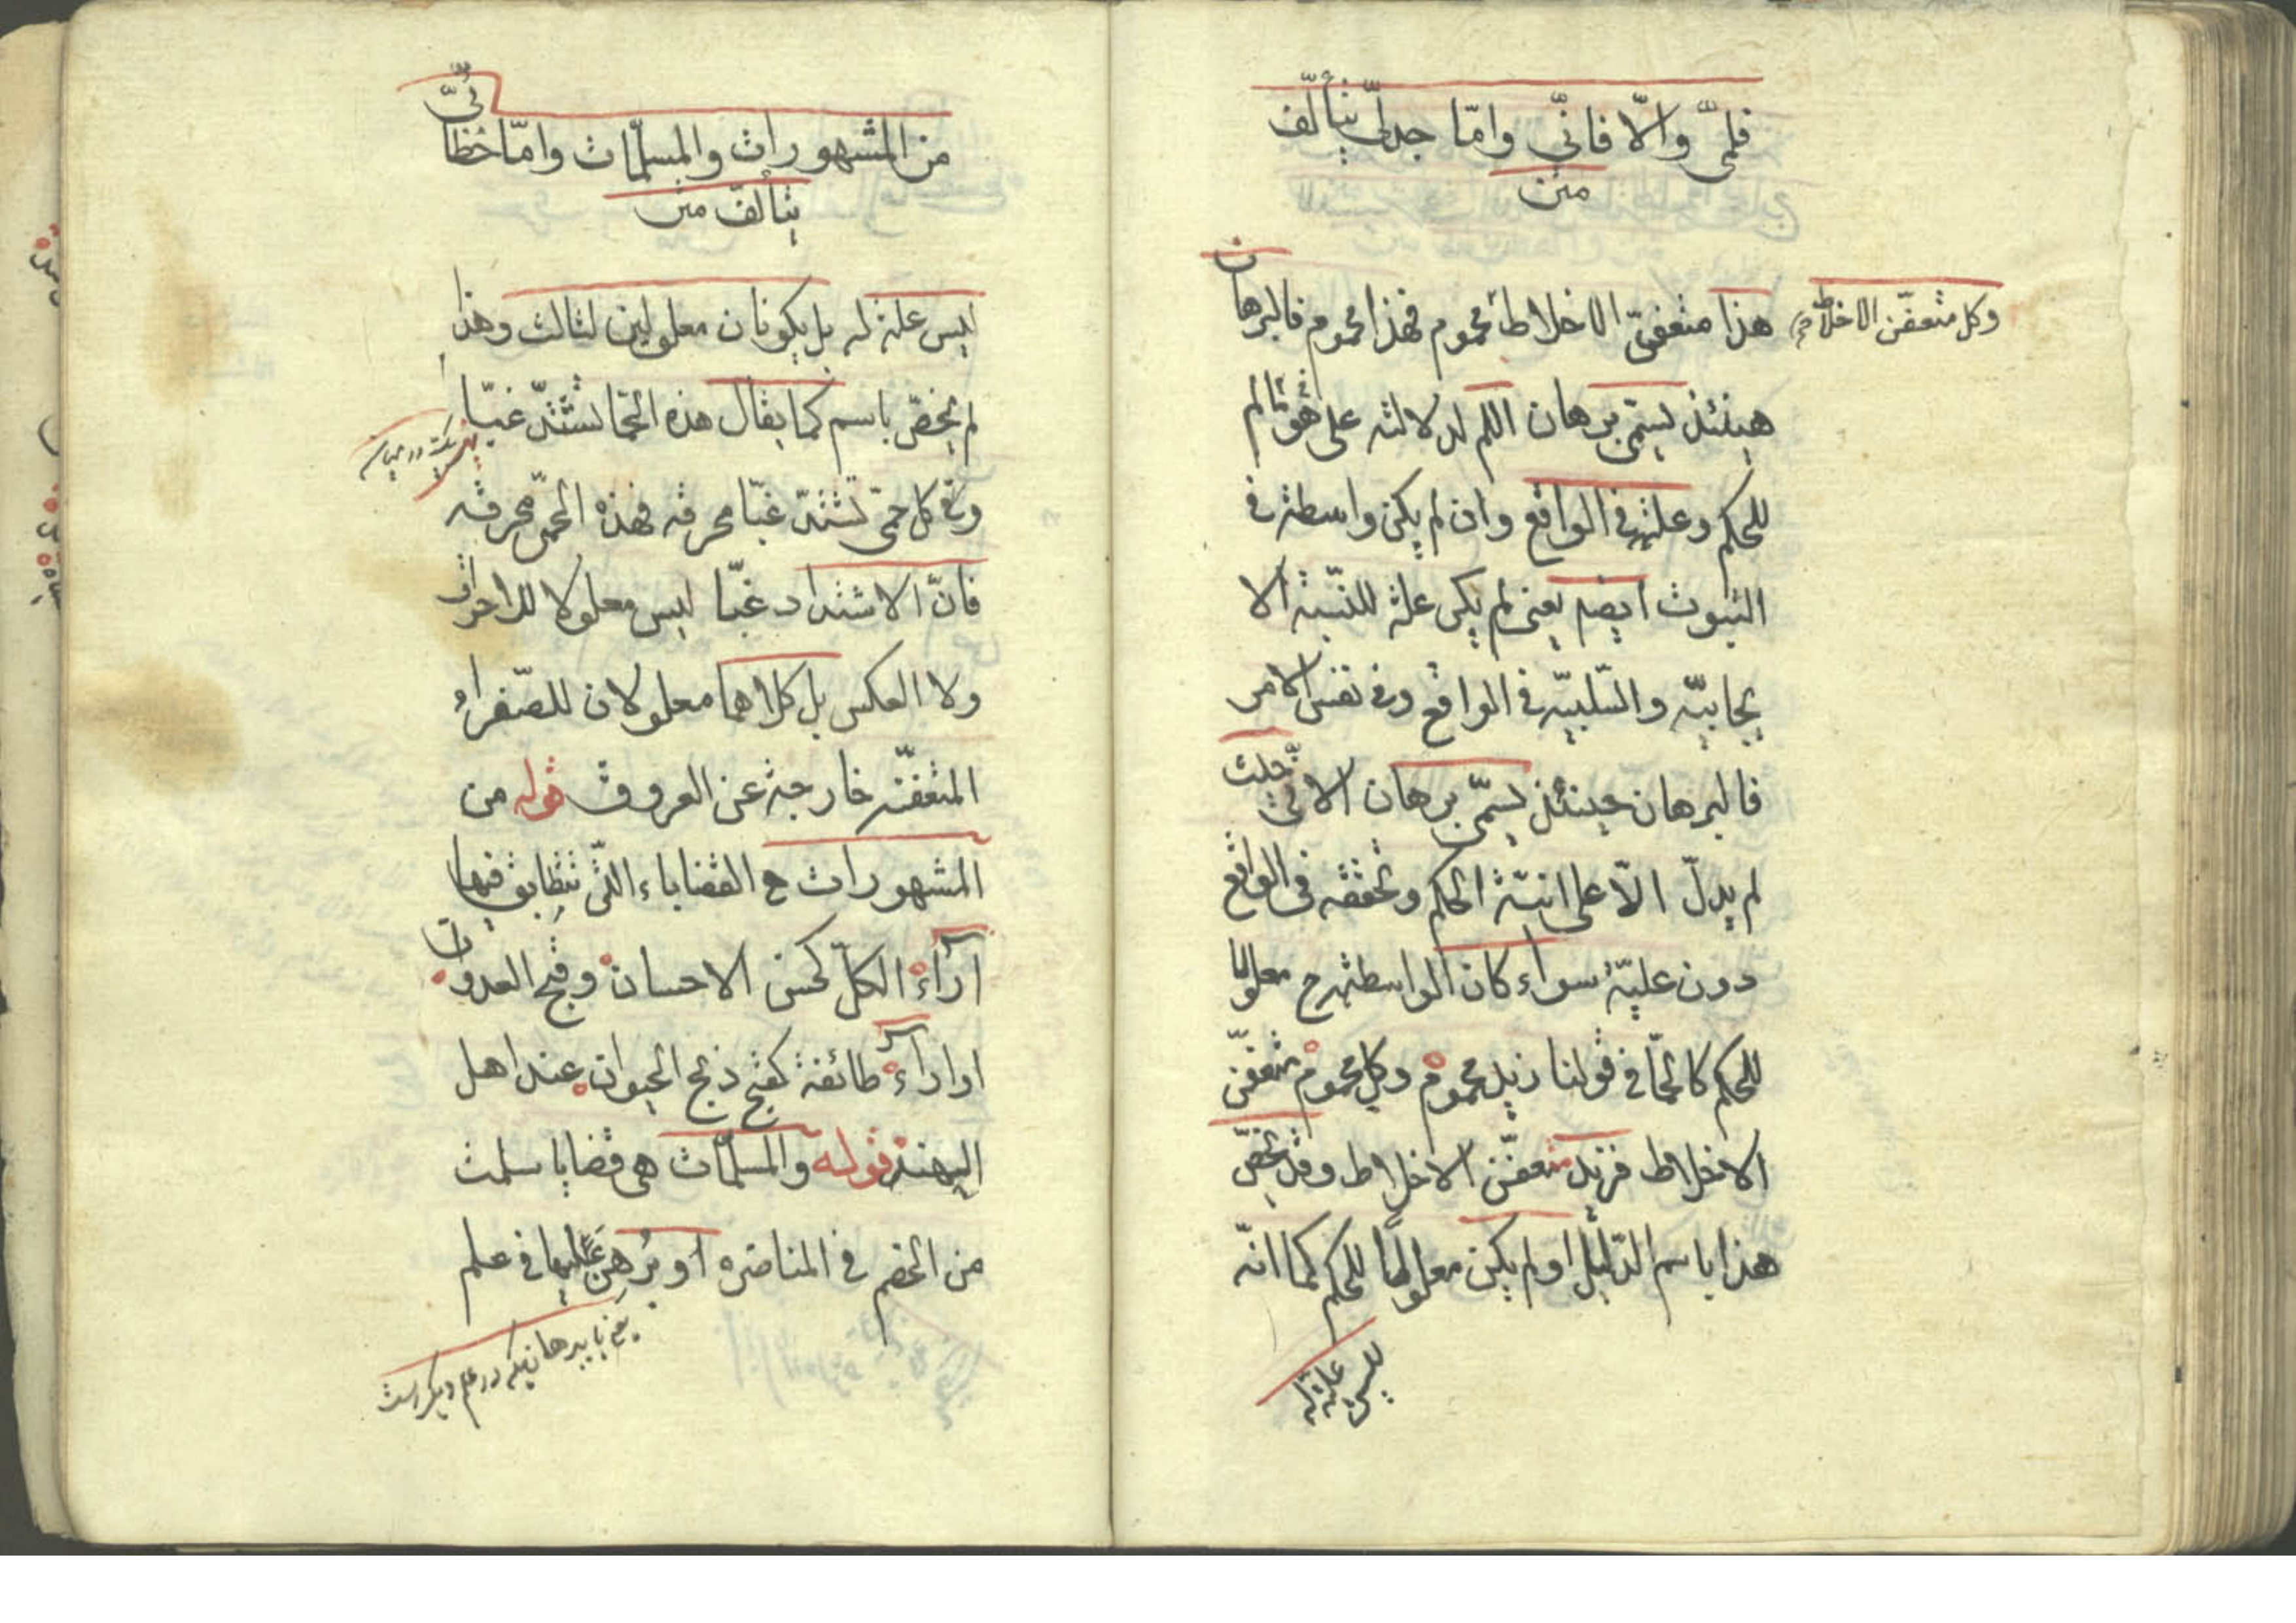 فلمّى والّا فانّي وامّا جدلى يتألّف
من
وكل متعفّن الاخلاط
هذا متعفن الاخلاط محموم فهذا محموم فالبرهان
حينئذ يسمّى برهان اللم لدلالته على هو لم
للحكم وعلته في الواقع وان لم يكن واسطة في
الثبوت ايضا يعنى لم يكن علة للنسبة الا
يجابيّة والسّلبيّة في الواقع وفى نفس الامر
فالبرهان حينئذ يسمّى برهان الانّ حيث
لم يدلّ الّا على انيّة الحكم وتحققه فى الواقع
دون عليّة سواء كان الواسطة ح معلولا
للحكم كالحمّا في قولنا زيد محموم وكل محموم متعفّن
الاخلاط فزيد متعفّن الاخلاط وقد يخصّ
هذا باسم الدّليل او لم يكن معلولا للحكم كما انّه
ليس علة له
من المشهورات والمسلّمات وامّا خطابىّ
يتألف من
ليس علة له بل يكونان معلولين لثالث وهذا
لم يخصّ باسم كما يقال هذه الحمّا تشتدّ غبّا
وفى كل حمّى تشتدّ غبّا محرقه فهذه الحمّى محرقه
فانّ الاشتداد غبّا ليس معلولا للاحراق
ولا العكس بل كلاهما معلولان للصّفراء
المتعفّنه خارجة عن العروق قوله من
المشهورات ح القضاياء الّتى تتطابق فيها
آراء الكلّ كحسن الاحسان وقبح العدوان
او اراء طائفة كقبح ذبح الحيوان عند اهل
الهند قوله والمسلّمات هى قضايا سلمت
من الخصم في المناضره او برهن عليها في علم
يعنى با برهانيكه در علم ديگر است